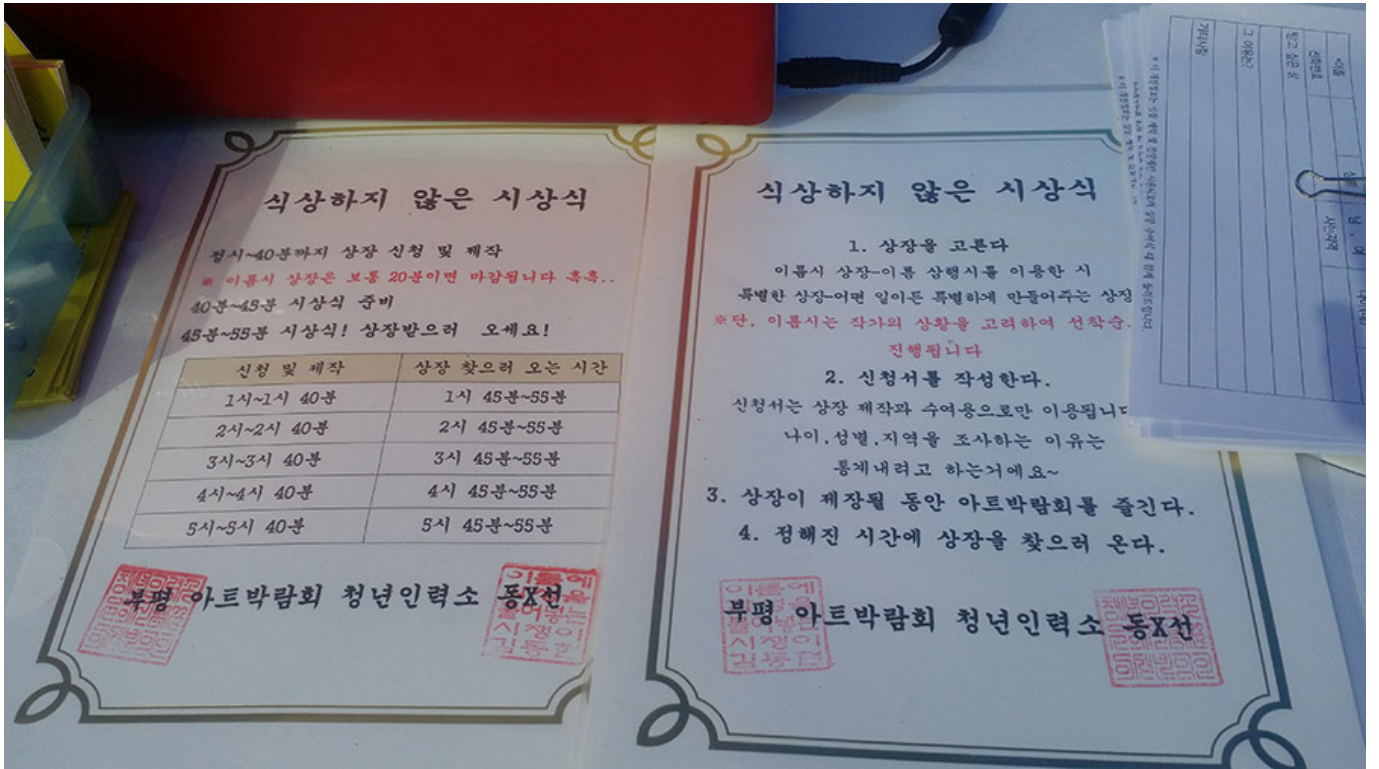 식상하지 않은 시상식
정시~40분까지 상장 신청 및 제작
※ 이름시 상장은 보통 20분이면 마감됩니다 흑흑..
40분~45분 시상식 준비
45분~55분 시상식! 상장받으러 오세요!
신청 및 제작 상장 찾으러 오는 시간
1시~1시 40분 1시 45분~55분
2시~2시 40분 2시 45분~55분
3시~3시 40분 3시 45분~55분
4시~4시 40분 4시 45분~55분
5시~5시 40분 5시 45분~55분
부평 아트박람회 청년인력소 동X선
이름에
붙여넣는
시쟁이
김동현
식상하지 않은 시상식
1. 상장을 고른다
이름시 상장-이름 삼행시를 이용한 시
특별한 상장-어떤 일이든 특별하게 만들어주는 상장
※단, 이름시는 작가의 상황을 고려하여 선착순.
진행됩니다
2. 신청서를 작성한다.
신청서는 상장 제작과 수여용으로만 이용됩니다
나이,성별,지역을 조사하는 이유는
통계내려고 하는거에요~
3. 상장이 제장될 동안 아트박람회를 즐긴다.
4. 정해진 시간에 상장을 찾으러 온다.
부평 아트박람회 청년인력소 동X선
이름에
붙여넣는
시쟁이
김동현
이름
남, 여
전화번호
사는지역
받고 싶은 상
그 이유는?
기타사항